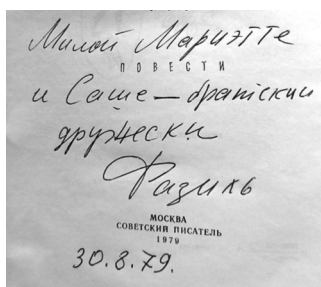 Милой Мариэтте
ПОВЕСТИ
и Саше — братский
дружески
Фазиль
МОСКВА
СОВЕТСКИЙ ПИСАТЕЛЬ
1979
30.8.79.